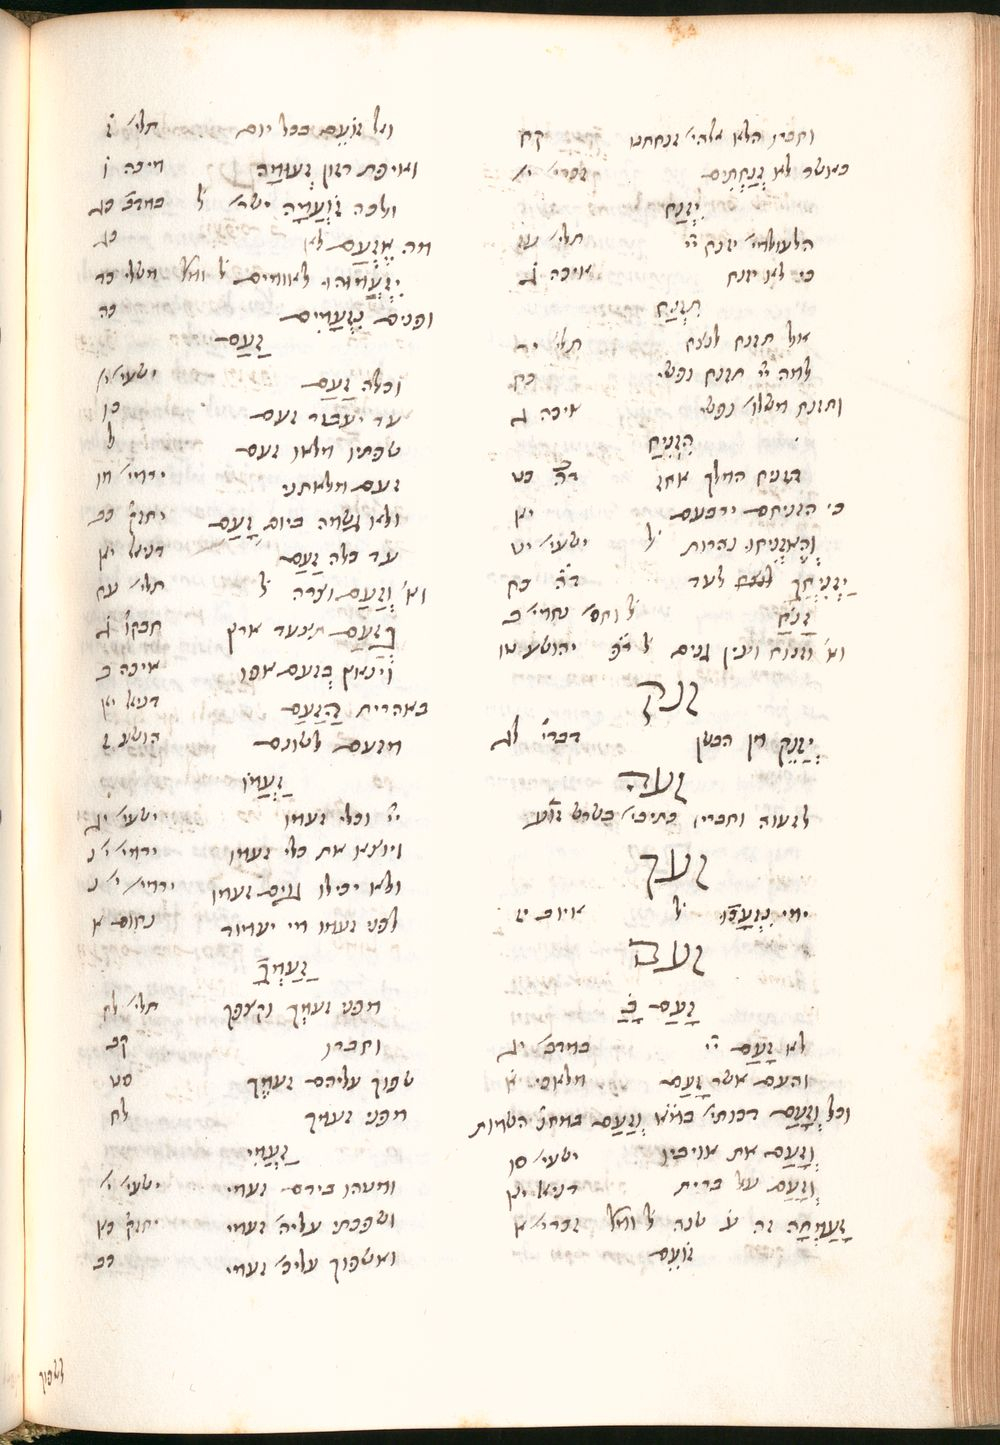 וחברו הלא אלהי׳ זנחתנו קח
כאשר לא זְנַחְתִּים זכרי׳ י׳
יִזְנַח
הלעולמי׳ יזנח יי׳ תלי׳ עז
כי לא יזנח איכה ג
תִזְנַח
אל תזנח לנצח תלי׳ מד
למה יי׳ תזנח נפשי פח
ותזנח משלו׳ נפשי איכה ג
הִזְנִיחַ
הזניח המלך אחז ד״ה כט
כי הזניחם ירבעם יא
וְהֶאֶזְנִיחוּ נהרות ל׳ ישעי׳ יט
יַזְנִיחֲךָ לעד ד״ה כח
זָנֹחַ ל׳ וחס׳ נחמי׳ ב
וא׳ וזנוח ועין גנים ל׳ יהושע טו
זנק
יְזַנֵּק מן הבשן דברי׳ לג
זעה
לזעוה וחבריו כתיבי׳ בשרש זוע
זעך
ימי נִזְעָכוּ ל׳ איוב יז
זעם
זָעַם
לא זָעַם יי׳ במדב׳ כג
והעם אשר זָעַם מלאכי א
וכל וְזָעַם דכותי׳ במ״א וְזַעַם במחנ׳ השמות
וְזָעַם את אויביו ישעי׳ סו
וְזָעַם על ברית דניאל יא
זָעַמְתָּה זה ע׳ שנה ל׳ ומל׳ זכרי׳ א
זוֹעֵם
ואל זוֹעֵם בכל יום תלי׳ ז
ואיפת רזון זְעוּמָה מיכה ו
ולכה זוֹעֲמָה ישר׳ ל׳ במדב׳ כג
מה אֶזְעֹם לא כג
יִזְעָמוּהוּ לאומים ל׳ ומל׳ משלי כד
ופנים נִזְעָמִים כה
זַעַם
וכלה זַעַם ישעי׳ י׳
עד יעבור זעם כו
שפתיו מלאו זעם ל
זעם מלאתני ירמי׳ טו
ולא גֻשמה ביום זָעַם יחזק׳ כב
עד כלה זַעַם דניאל יא
וא׳ וָזַעַם וצרה ל׳ תלי׳ עח
בְּזַעַם תצעד ארץ חבקו׳ ג
וַיִּנְאַץ בְּזַעַם אפו איכה ב
באחרית הַזַּעַם דניאל ח
מזעם לשונם הושע ז
זַעְמוֹ
יי׳ וכלי זעמו ישעי׳ יג
ויוצא את כלי זעמו ירמי׳ נ
ולא יכילו גוים זעמו ירמי׳ י׳
לפני זעמו מי יעמוד נחום א
זַעְמְךָ
מפני זעמך וקצפך תלי׳ לח
וחברו קב
שפוך עליהם זעמֶך סט
מפני זעמך לח
זַעְמִי
ומטהו בידם זעמי ישעי׳ י׳
ושפכתי עליך׳ זעמי יחזק׳ כא
ואשפוך עליה׳ זעמי כב
לשפוך